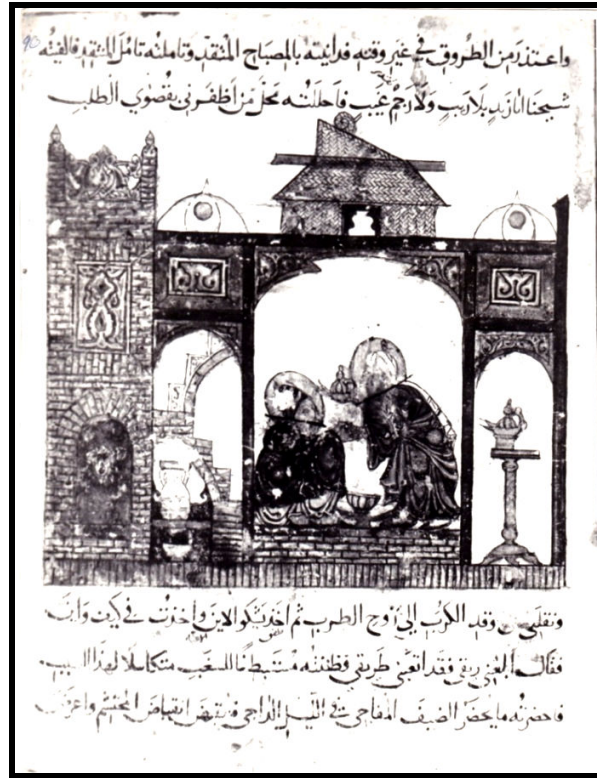 90
واعتذر من الطروق في غير وقته فدانيته بالمصباح المتقد وتاملته تامل المنتقد فالفيته
شيخنا ابا زيد بلا ريب ولا رجم غيب فاحللته محل من اظفرني بقصوي الطلب
ونقلني من وقد الكرب الي روح الطرب ثم اخذ يشكو الاين واخذت في كيف واين
فقال ابلعني ريقي فقد اتعبني طريقي فظننته مستبطنا للسغب متكاسلا لهذا السبب
فاحضرته ما يحضر الضيف المفاجي في الليل الداجي فانقبض انقباض المحتشم واعرض